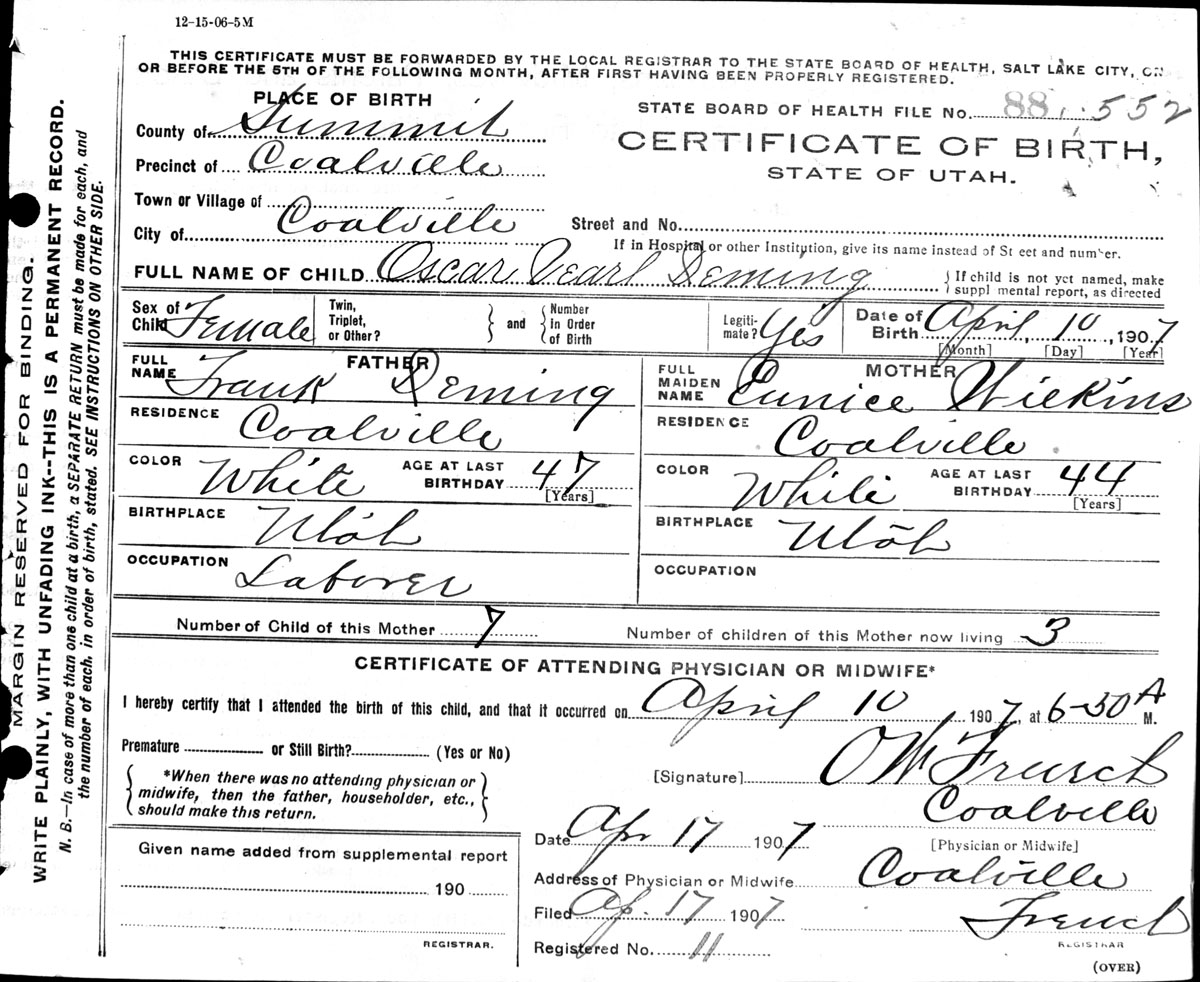 12-15-06-5M
THIS CERTIFICATE MUST BE FORWARDED BY THE LOCAL REGISTRAR TO THE STATE BOARD OF HEALTH, SALT LAKE CITY, ON
OR BEFORE THE 5TH OF THE FOLLOWING MONTH, AFTER FIRST HAVING BEEN PROPERLY REGISTERED.
PLACE OF BIRTH
STATE BOARD OF HEALTH FILE No. 88 552
County of Summit
CERTIFICATE OF BIRTH,
Precinct of Coalville
STATE OF UTAH.
Town or Village of
City of Coalville Street and No.
If in Hospital or other Institution, give its name instead of St eet and number.
FULL NAME OF CHILD Oscar Pearl Deming { If child is not yet named, make suppl mental report, as directed
Sex of Child Female Twin, Triplet, or Other? } and { Number In Order of Birth Legiti-mate? Yes Date of Birth April 10, 1907
[Month] [Day] [Year]
FATHER MOTHER
FULL NAME Frank Deming FULL MAIDEN NAME Eunice Wilkins
RESIDENCE Coalville RESIDENCE Coalville
COLOR White AGE AT LAST BIRTHDAY 47 [Years] COLOR White AGE AT LAST BIRTHDAY 44 [Years]
BIRTHPLACE Utah BIRTHPLACE Utah
OCCUPATION Laborer OCCUPATION
Number of Child of this Mother 7 Number of children of this Mother now living 3
CERTIFICATE OF ATTENDING PHYSICIAN OR MIDWIFE*
I hereby certify that I attended the birth of this child, and that it occurred on April 10 1907, at 6-30 A M.
Premature or Still Birth? (Yes or No)
{ *When there was no attending physician or
midwife, then the father, householder, etc.,
should make this return. }
[Signature]
Coalville
Date Apr 17 1907 [Physician or Midwife]
Address of Physician or Midwife Coalville
Filed Ap. 17 1907 French
REGISTRAR
Registered No. 11
(OVER)
Given name added from supplemental report
190
REGISTRAR.
MARGIN RESERVED FOR BINDING.
WRITE PLAINLY, WITH UNFADING INK--THIS IS A PERMANENT RECORD.
N. B.—In case of more than one child at a birth, a SEPARATE RETURN must be made for each, and
the number of each, in order of birth, stated. SEE INSTRUCTIONS ON OTHER SIDE.